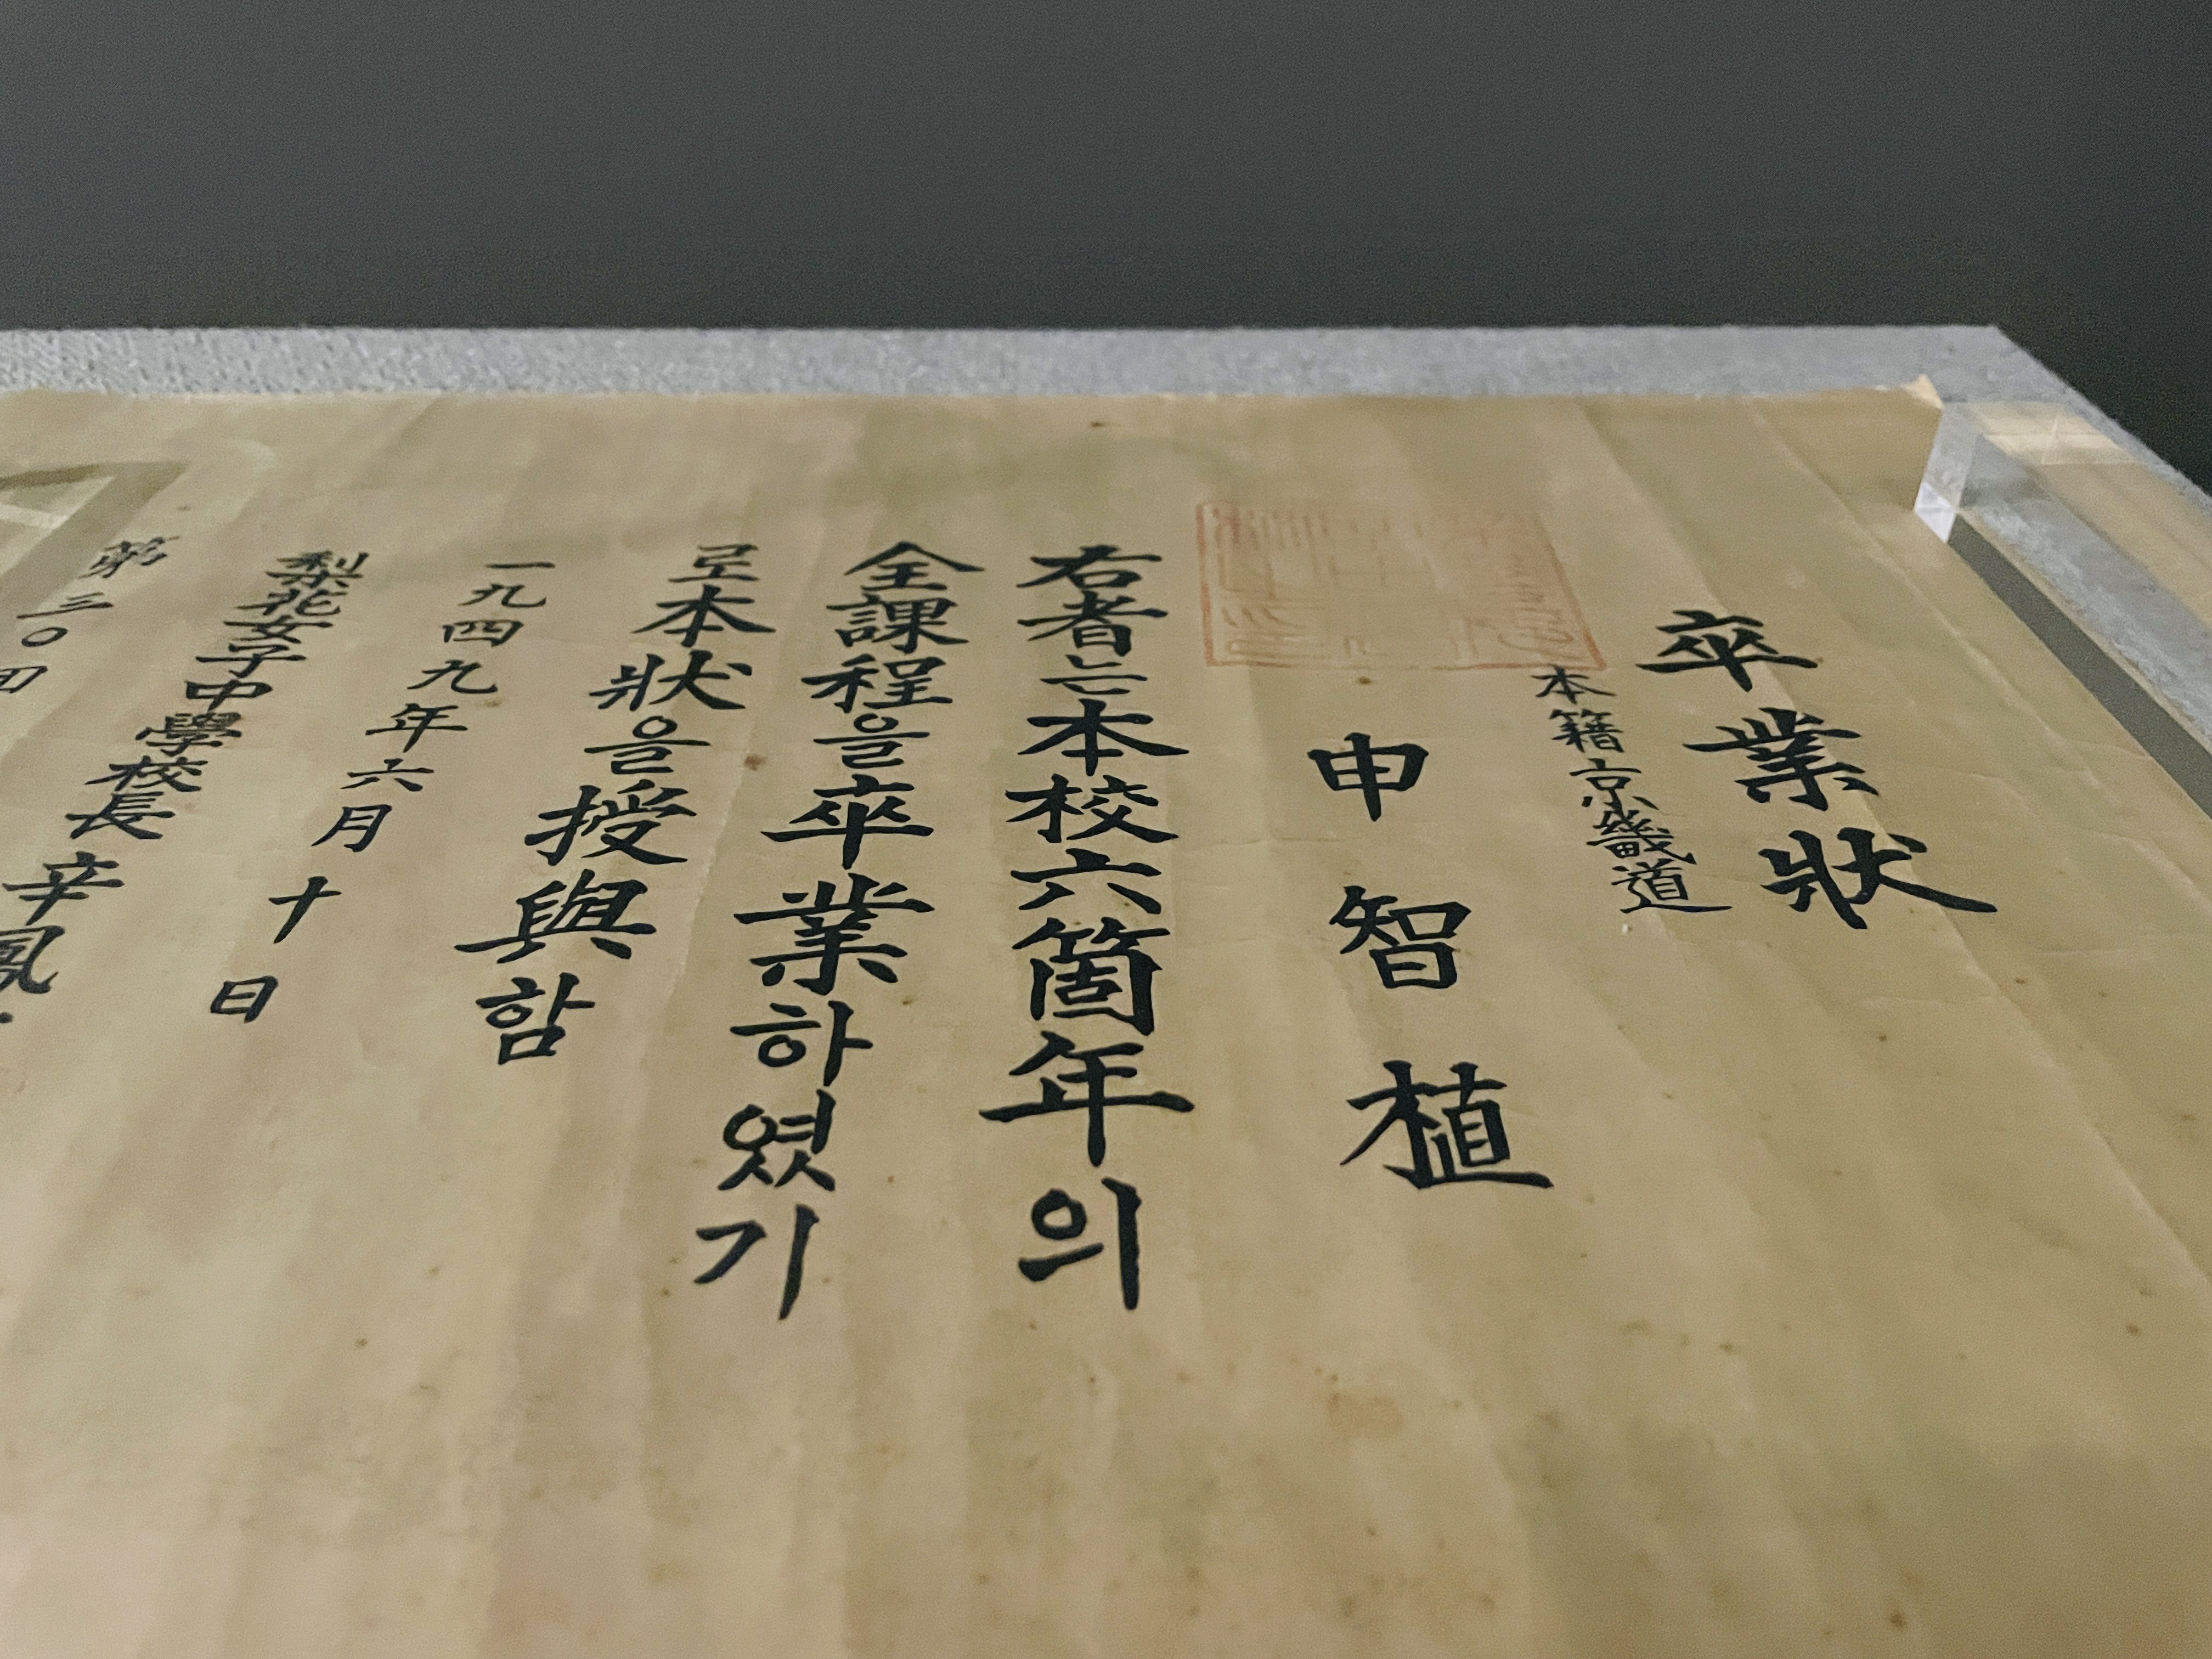 卒業狀
本籍京畿道
申智植
右者는本校六箇年의
全課程을卒業하였기
로本狀을授與함
一九四九年六月十日
梨花女子中學校長辛鳳
第三〇四